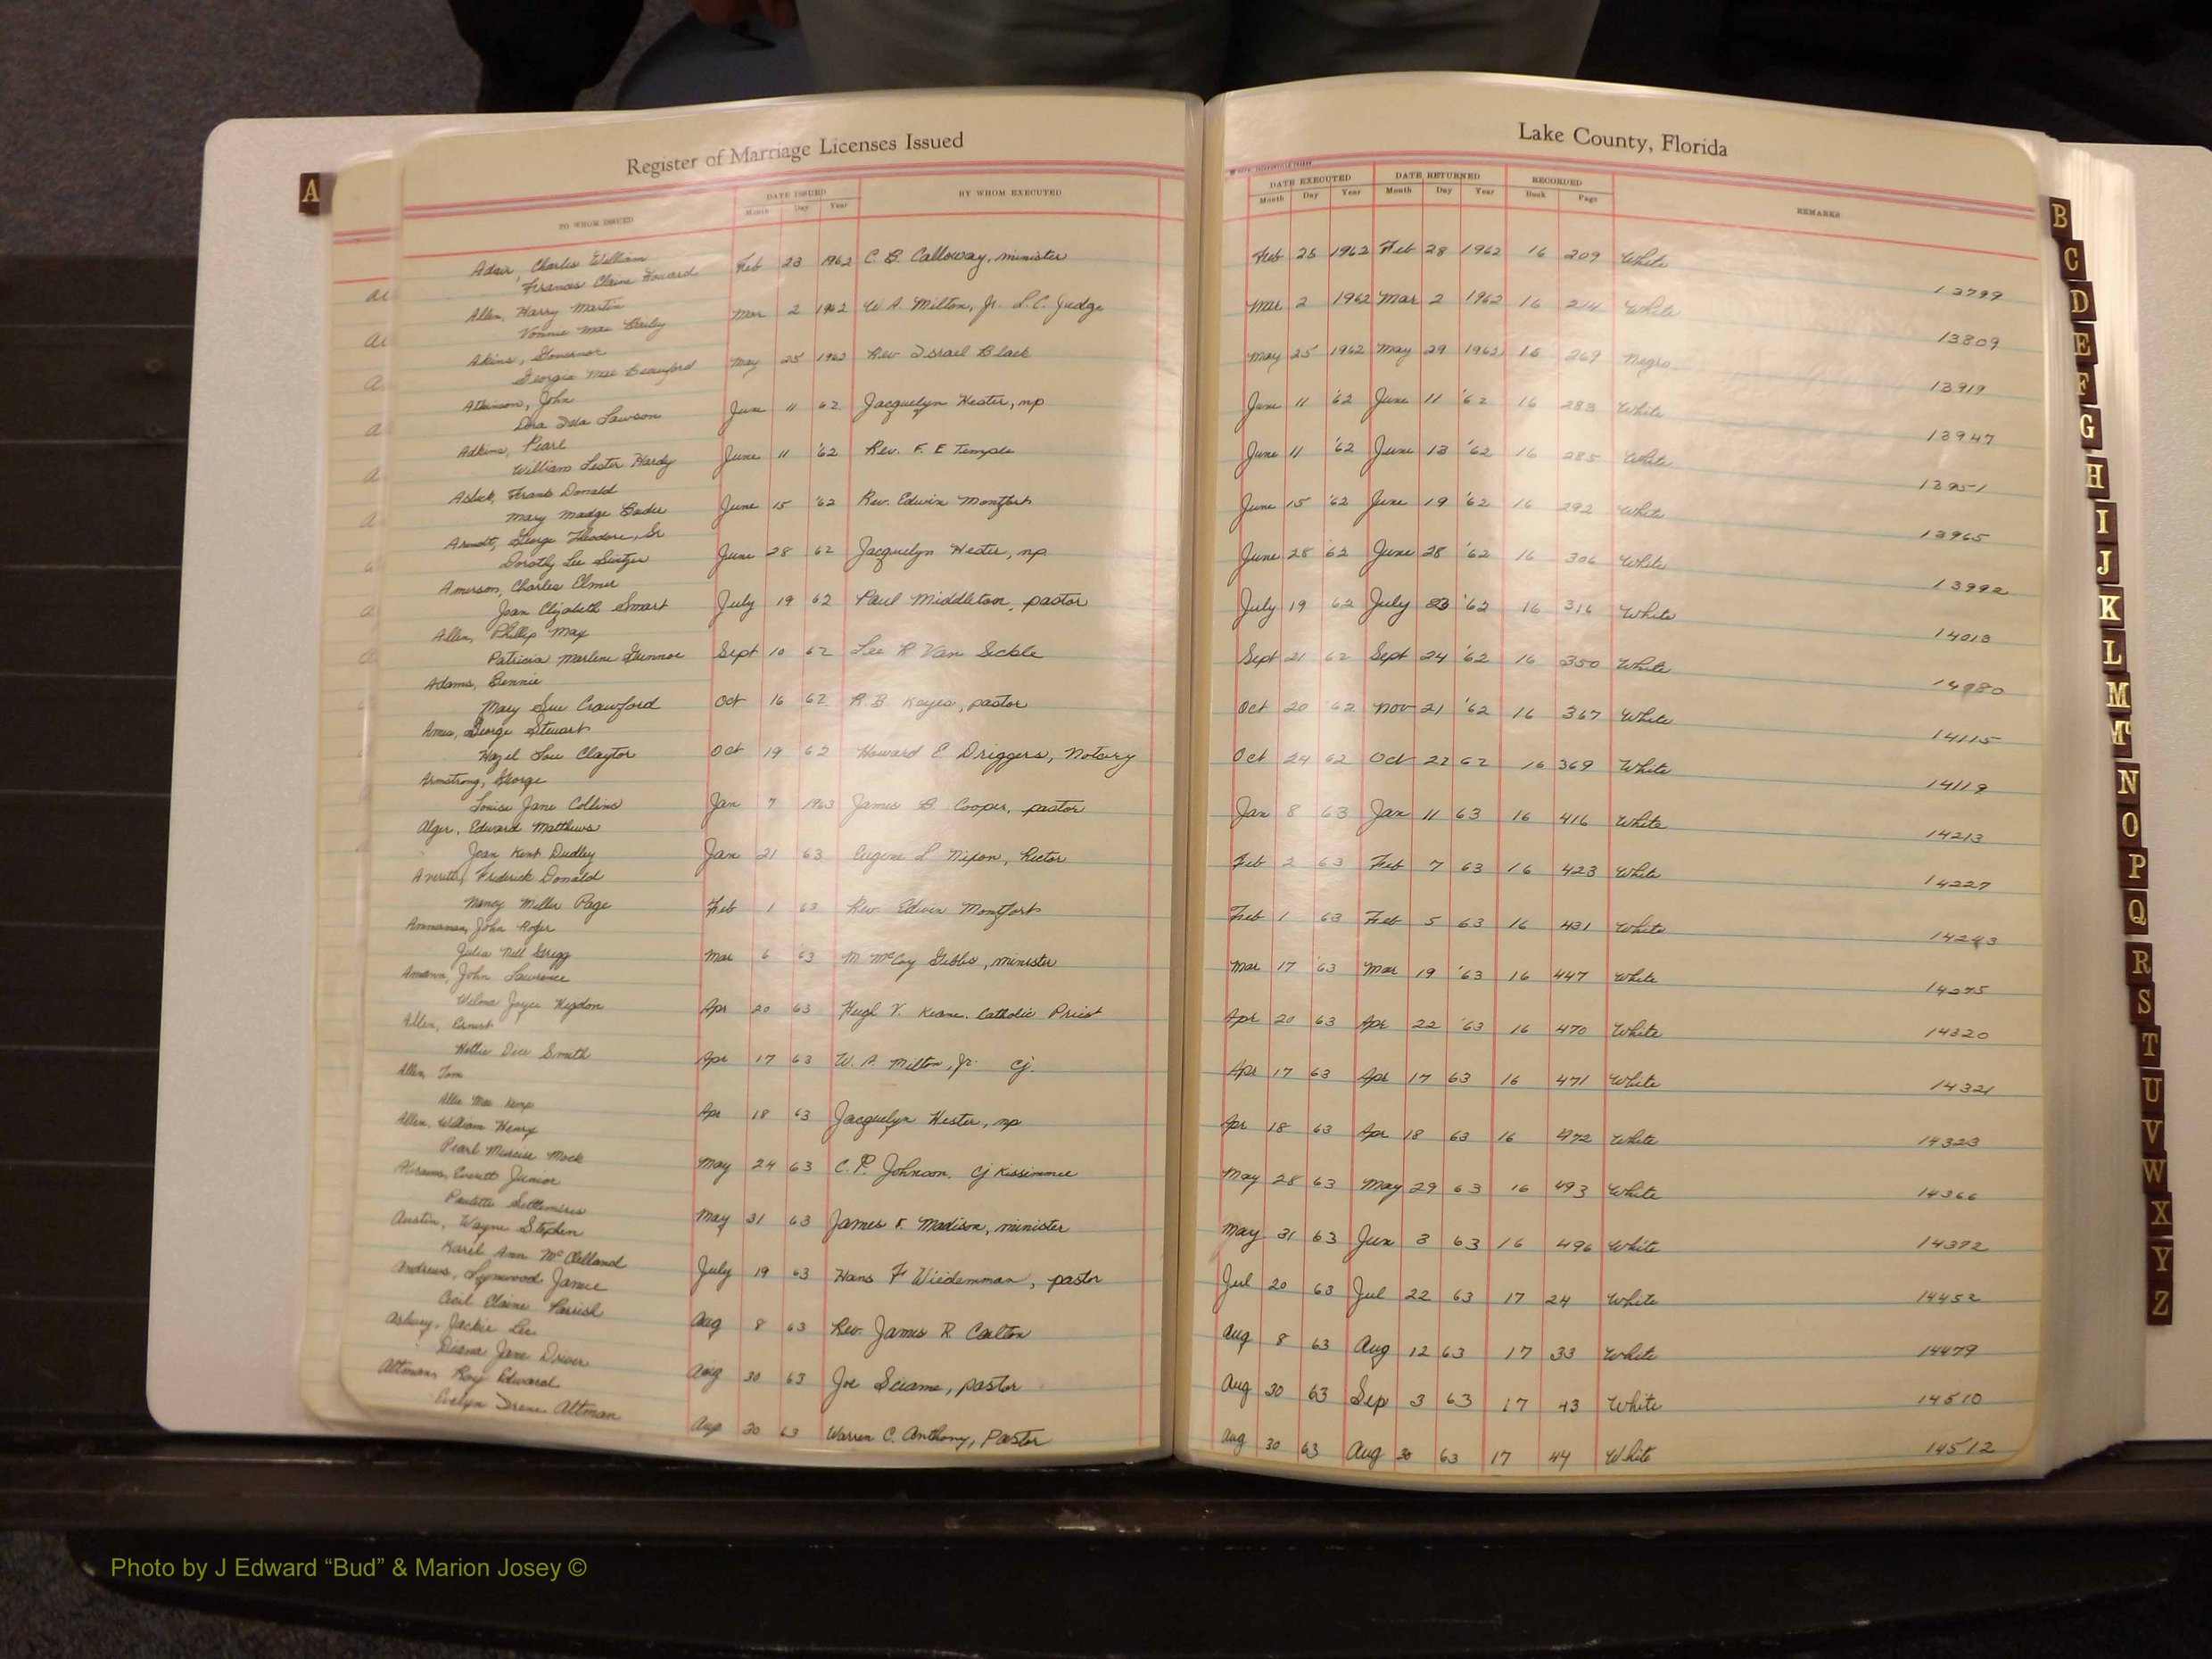 Register of Marriage Licenses Issued
Lake County, Florida
TO WHOM ISSUED
DATE ISSUED
Month Day Year
BY WHOM EXECUTED
DATE EXECUTED
Month Day Year
DATE RETURNED
Month Day Year
RECORDED
Book Page
REMARKS
A
Adair, Charles William
Frances Claire Howard Feb 23 1962 C. B. Calloway, minister Feb 25 1962 Feb 28 1962 16 209 White 13799
Allen, Harry Martin
Vonnie Mae Bailey Mar 2 1962 W. A. Milton, Jr. L.C. Judge Mar 2 1962 Mar 2 1962 16 214 White 13809
Akins, Governor
Georgia Mae Beauford May 25 1962 Rev Israel Black May 25 1962 May 29 1962 16 269 Negro 13919
Atkinson, John
Dora Ida Lawson June 11 62 Jacquelyn Hester, np June 11 '62 June 11 '62 16 283 White 13947
Adkins, Pearl
William Lester Hardy June 11 '62 Rev. F. E Temple June 11 '62 June 13 '62 16 285 White 13951
Frank Donald
Mary Madge Bader June 15 '62 Rev. Edwin Montfort June 15 '62 June 19 '62 16 292 White 13965
Arndt, George Theodore, Sr
Dorothy Lee June 28 62 Jacquelyn Hester, np June 28 '62 June 28 '62 16 306 White 13992
Amerson, Charles Elmer
Joan Elizabeth Smart July 19 62 Paul Middleton, pastor July 19 62 July 23 '62 16 316 White 14013
Allen, Phillip May
Patricia Marlene Gunnoe Sept 10 62 Lee R Van Sickle Sept 21 62 Sept 24 '62 16 350 White
Adams, Bennie
Mary Sue Crawford Oct 16 62 R. B. Keyes, pastor Oct 20 '62 Nov 21 '62 16 367 White 14115
Ames, George Stewart
Hazel Lou Claytor Oct 19 62 Howard E Driggers, Notary Oct 24 62 Oct 22 62 16 369 White 14119
Armstrong, George
Louise Jane Collins Jan 7 1963 James B. Cooper, pastor Jan 8 63 Jan 11 63 16 416 White 14213
Alger, Edward Matthews
Joan Kent Dudley Jan 21 63 Eugene L Nixon, Rector Feb 2 63 Feb 7 63 16 423 White 14227
Averitt, Frederick Donald
Nancy Miller Page Feb 1 63 Rev Edwin Montfort Feb 1 63 Feb 5 63 16 431 White 14243
Ammerman, John Roger
Julia Nell Grigg Mar 6 '63 M. McCoy Gibbs, minister Mar 17 '63 Mar 19 '63 16 447 White 14275
Amann, John Lawrence
Wilma Joyce Higdon Apr 20 63 Hugh V. Keane, Catholic Priest Apr 20 63 Apr 22 '63 16 470 White 14320
Allen, Ernest
Hettie Dice Smith Apr 17 63 W. A. Milton, Jr. Cj. Apr 17 63 Apr 17 63 16 471 White 14321
Allen, Tom
Allie Mae Kemp Apr 18 63 Jacquelyn Hester, np Apr 18 63 Apr 18 63 16 472 White 14323
Allen, William Henry
Pearl Mock May 24 63 C. P. Johnson, Cj Kissimmee May 28 63 May 29 63 16 493 White 14366
Abrams, Everett Junior
Paulette Settlemires May 31 63 James F. Madison, minister May 31 63 Jun 3 63 16 496 White 14372
Austin, Wayne Stephen
Karil Ann McClelland July 19 63 Hans F Wiedemman, pastor Jul 20 63 Jul 22 63 17 24 White 14452
Andrews, Lynwood Jamie
Cecil Elaine Parrish Aug 8 63 Rev. James R. Carlton Aug 8 63 Aug 12 63 17 33 White 14479
Asbury, Jackie Lee
Diana Jane Driver Aug 30 63 Joe Sciame, pastor Aug 30 63 Sep 3 63 17 43 White 14510
Altman, Roy Edward
Evelyn Irene Altman Aug 30 63 Warren C. Anthony, Pastor Aug 30 63 Aug 30 63 17 44 White 14512
B
C
D
E
F
G
H
I
J
K
L
M
Mc
N
O
P
Q
R
S
T
U
V
W
X
Y
Z
Photo by J Edward “Bud” & Marion Josey ©